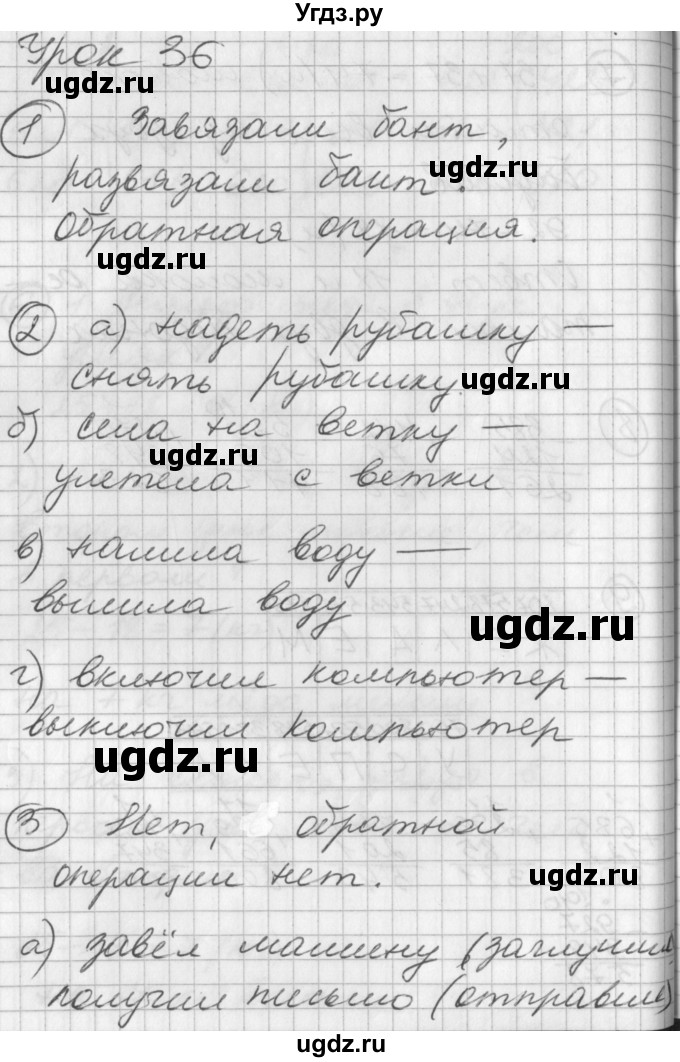 Угдз.ру
Урок 36
ugdz.ru
1 Завязали бант,
развязали бант.
ugdz.ru
Обратная операция.
ugdz.ru
2 а) надеть рубашку —
снять рубашку
ugdz.ru
б) села на ветку —
ugdz.ru
улетела с ветки
в) налила воду —
вылила воду
ugdz.ru
г) включил компьютер —
выключил компьютер
ugdz.ru
3 Нет, обратной
операции нет.
ugdz.ru
а) завёл машину (заглушил
получил письмо (отправил)
ugdz.ru
Угдз.ру